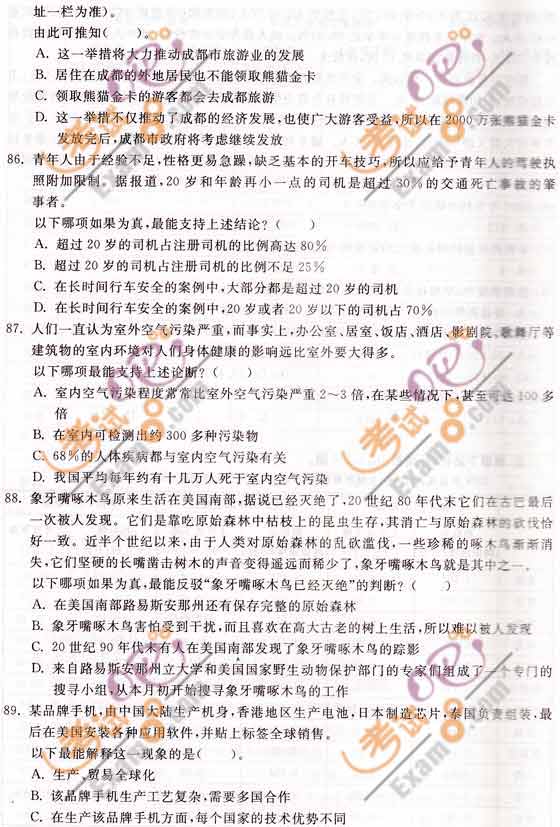 址一栏为准)。
由此可推知(　　)。
A. 这一举措将大力推动成都市旅游业的发展
B. 居住在成都的外地居民也不能领取熊猫金卡
C. 领取熊猫金卡的游客都会去成都旅游
D. 这一举措不仅推动了成都的经济发展,也使广大游客受益,所以在 2000 万张熊猫金卡
发放完后,成都市政府将考虑继续发放
86. 青年人由于经验不足,性格更易急躁,缺乏基本的开车技巧,所以应给予青年人的驾驶执
照附加限制。据报道,20 岁和年龄再小一点的司机是超过 30%的交通死亡事故的肇
事者。
以下哪项如果为真,最能支持上述结论?(　　)
A. 超过 20 岁的司机占注册司机的比例高达 80%
B. 超过 20 岁的司机占注册司机的比例不足 25%
C. 在长时间行车安全的案例中,大部分都是超过 20 岁的司机
D. 在长时间行车安全的案例中,20 岁或者 20 岁以下的司机占 70%
87. 人们一直认为室外空气污染严重,而事实上,办公室、居室、饭店、酒店、影剧院、歌舞厅等
建筑物的室内环境对人们身体健康的影响远比室外要大得多。
以下哪项最能支持上述论断?(　　)
A. 室内空气污染程度常常比室外空气污染严重 2～3 倍,在某些情况下,甚至可达 100 多
倍
B. 在室内可检测出约 300 多种污染物
C. 68%的人体疾病都与室内空气污染有关
D. 我国平均每年约有十几万人死于室内空气污染
88. 象牙嘴啄木鸟原来生活在美国南部,据说已经灭绝了,20 世纪 80 年代末它们在古巴最后
一次被人发现。它们是靠吃原始森林中枯枝上的昆虫生存,其消亡与原始森林的砍伐恰
好一致。近半个世纪以来,由于人类对原始森林的乱砍滥伐,一些珍稀的啄木鸟渐渐消
失,它们坚硬的长嘴凿击树木的声音变得遥远而稀少了,象牙嘴啄木鸟就是其中之一。
以下哪项如果为真,最能反驳“象牙嘴啄木鸟已经灭绝”的判断?(　　)
A. 在美国南部路易斯安那州还有保存完整的原始森林
B. 象牙嘴啄木鸟害怕受到干扰,而且喜欢在高大古老的树上生活,所以难以被人发现
C. 20 世纪 90 年代末有人在美国南部发现了象牙嘴啄木鸟的踪影
D. 来自路易斯安那州立大学和美国国家野生动物保护部门的专家们组成了一个专门的
搜寻小组,从本月初开始搜寻象牙嘴啄木鸟的工作
89. 某品牌手机,由中国大陆生产机身,香港地区生产电池,日本制造芯片,泰国负责组装,最
后在美国安装各种应用软件,并贴上标签全球销售。
以下最能解释这一现象的是(　　)。
A. 生产、贸易全球化
B. 该品牌手机生产工艺复杂,需要多国合作
C. 在生产该品牌手机方面,每个国家的技术优势不同